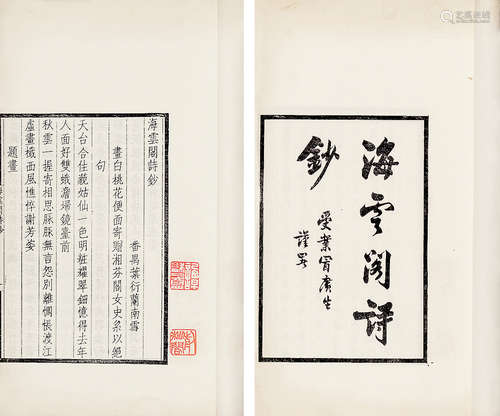 海雲閣詩
鈔
受業冒廣生
謹署
海雲閣詩鈔
番禺葉衍蘭南雪
畫白桃花便面寄贈湘芬閣女史系以絕
句
天台合住藐姑仙一色明粧耀翠鈿憶得去年
人面好雙蛾澹埽鏡臺前
秋雲一握寄相思脈脈無言怨別離惆悵渡江
虛畫檝西風憔悴謝芳姿
題畫